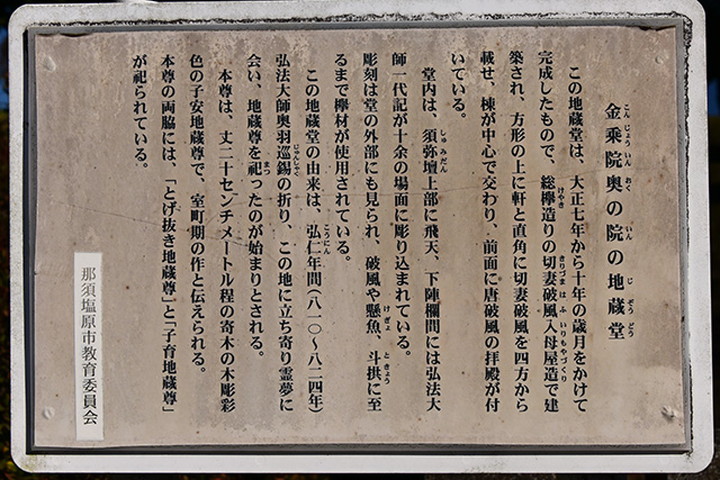 金乗院奥の院の地蔵堂
この地蔵堂は、大正七年から十年の歳月をかけて
完成したもので、総欅造りの切妻破風入母屋造で建
築され、方形の上に軒と直角に切妻破風を四方から
載せ、棟が中心で交わり、前面に唐破風の拝殿が付
いている。
堂内は、須弥壇上部に飛天、下陣欄間には弘法大
師一代記が十余の場面に彫り込まれている。
彫刻は堂の外部にも見られ、破風や懸魚、斗拱に至
るまで欅材が使用されている。
この地蔵堂の由来は、弘仁年間(八一〇〜八二四年)
弘法大師奥羽巡錫の折り、この地に立ち寄り霊夢に
会い、地蔵尊を祀ったのが始まりとされる。
本尊は、丈二十センチメートル程の寄木の木彫彩
色の子安地蔵尊で、室町期の作と伝えられる。
本尊の両脇には、「とげ抜き地蔵尊」と「子育地蔵尊」
が祀られている。
那須塩原市教育委員会